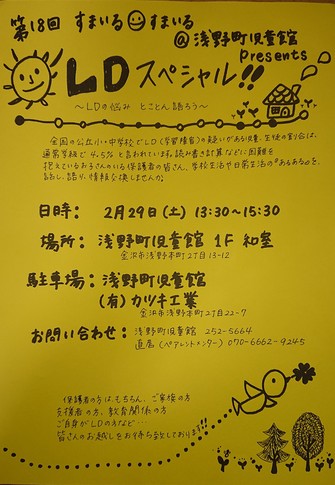 第18回 すまいる すまいる
@浅野町児童館
Presents
LDスペシャル!!
〜LDの悩み とことん語ろう〜
全国の公立小・中学校でLD(学習障害)の疑いがある児童・生徒の割合は、
通常学級で4.5%と言われています。読み書き計算などに困難を
抱えているお子さんのいる保護者の皆さん、学校生活や日常生活の"あるある"を、
話し、語り、情報交換しませんか。
日時: 2月29日(土) 13:30〜15:30
場所: 浅野町児童館 1F 和室
金沢市浅野本町2丁目13-12
駐車場: 浅野町児童館
(有)カツキ工業
金沢市浅野本町2丁目22-7
お問い合わせ: 浅野町児童館 252-5664
直 (ペアレントメンター) 070-6662-9245
保護者の方はもちろん、ご家族の方
支援者の方、教育関係の方
ご自身がLDの方など…
皆さんのお越しをお待ち致しております!!